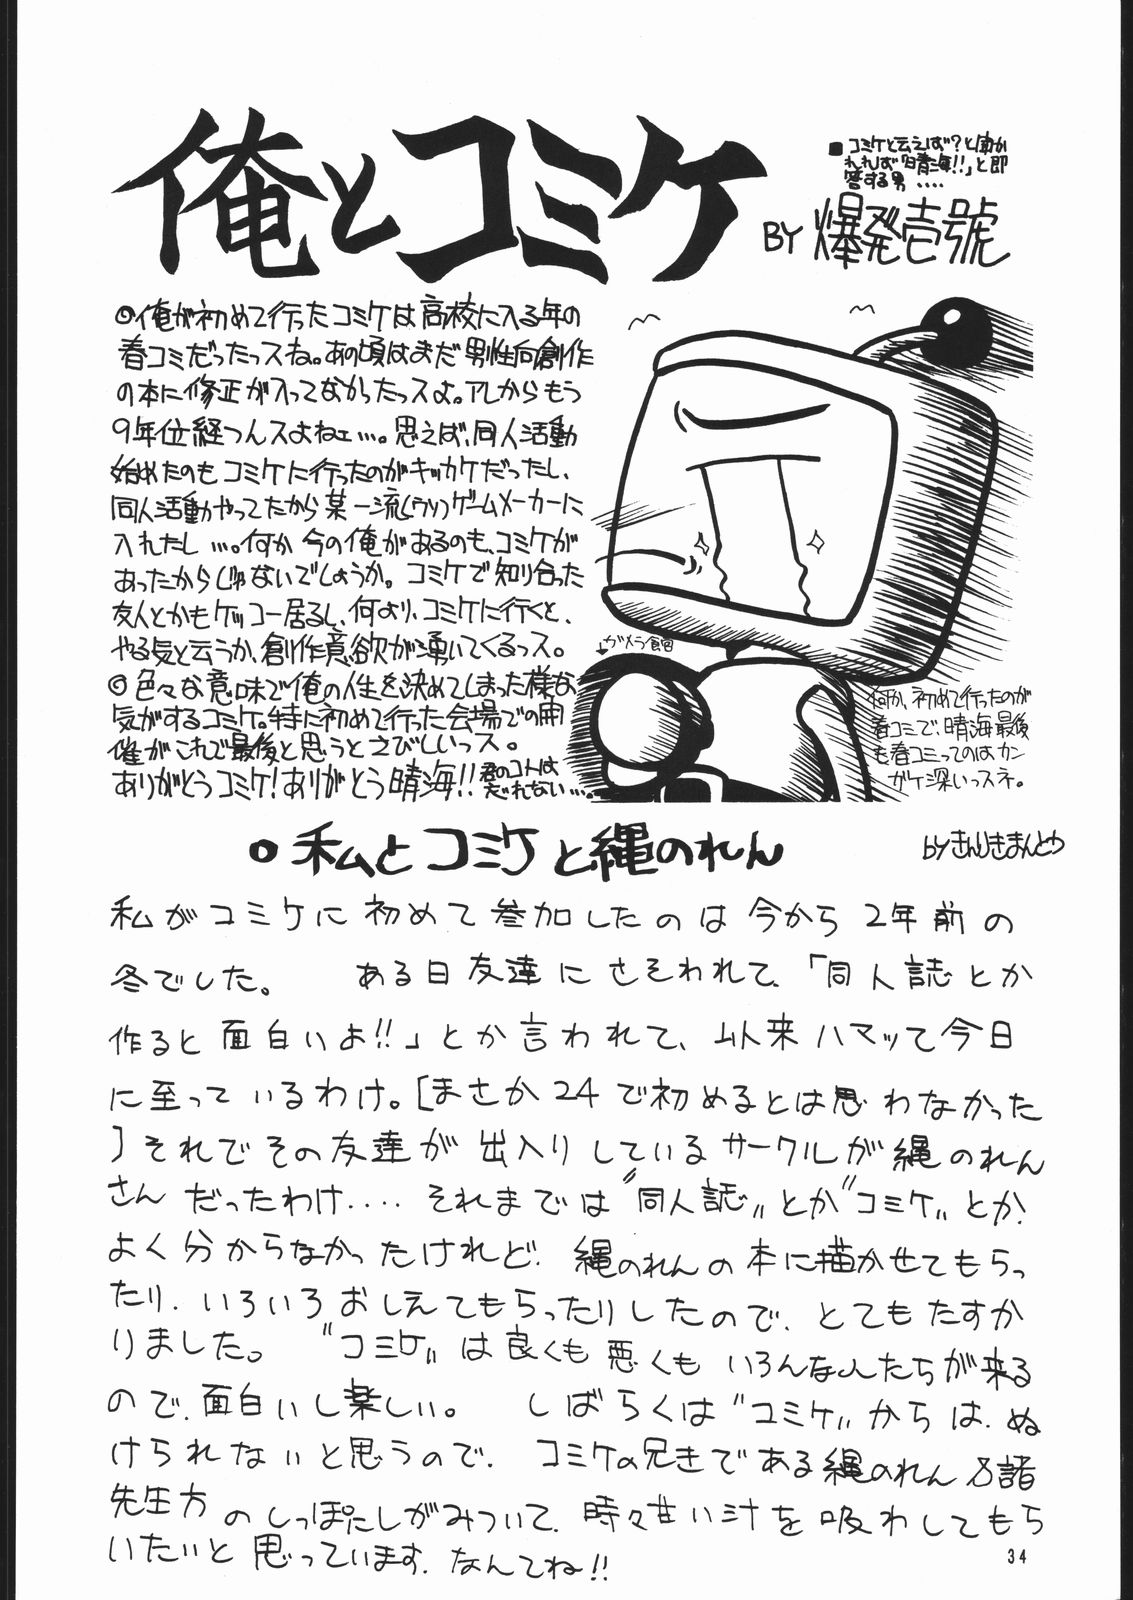 俺とコミケ
■コミケと云えば?と聞か
れれば「晴海!!」と即
答する男....
BY 爆発壱號
◎俺が初めて行ったコミケは高校に入る年の
春コミだったっスね。あの頃はまだ男性向創作
の本に修正が入ってなかったっスよ。アレからもう
9年位経つんスよねェ…。思えば、同人活動
始めたのもコミケに行ったのがキッカケだったし、
同人活動やってたから某一流(ウソ)ゲームメーカーに
入れたし…。何か今の俺があるのも、コミケが
あったからじゃないでしょうか。コミケで知り合った
友人とかもケッコー居るし、何より、コミケに行くと、
やる気と云うか、創作意欲が湧いてくるっス。
◎色々な意味で俺の人生を決めてしまった様な
気がするコミケ。特に初めて行った会場での開
催がこれで最後と思うとさびしいっス。
ありがとうコミケ!ありがとう晴海!!君のコトは
忘れない…。
ガメラ食
何か、初めて行ったのが
春コミで、晴海最後
も春コミってのはカン
ガケ深いっスネ。
○私とコミケと縄のれん
byきんりきまんとう
私がコミケに初めて参加したのは今から2年前の
冬でした。 ある日友達にさそわれて、「同人誌とか
作ると面白いよ!!」とか言われて、以来ハマッて今日
に至っているわけ。[まさか24で初めるとは思わなかった
]それでその友達が出入りしているサークルが縄のれん
さんだったわけ.... それまでは〝同人誌〟とか〝コミケ〟とか、
よく分からなかったけれど、縄のれんの本に描かせてもらっ
たり、いろいろおしえてもらったりしたので、とてもたすか
りました。 〝コミケ〟は良くも悪くもいろんな人たちが来る
ので、面白いし楽しい。 しばらくは〝コミケ〟からは、ぬ
けられないと思うので、コミケの兄きである縄のれん諸
先生方のしっぽにしがみついて、時々甘い汁を吸わしてもら
いたいと思っています、なんてね!!
34